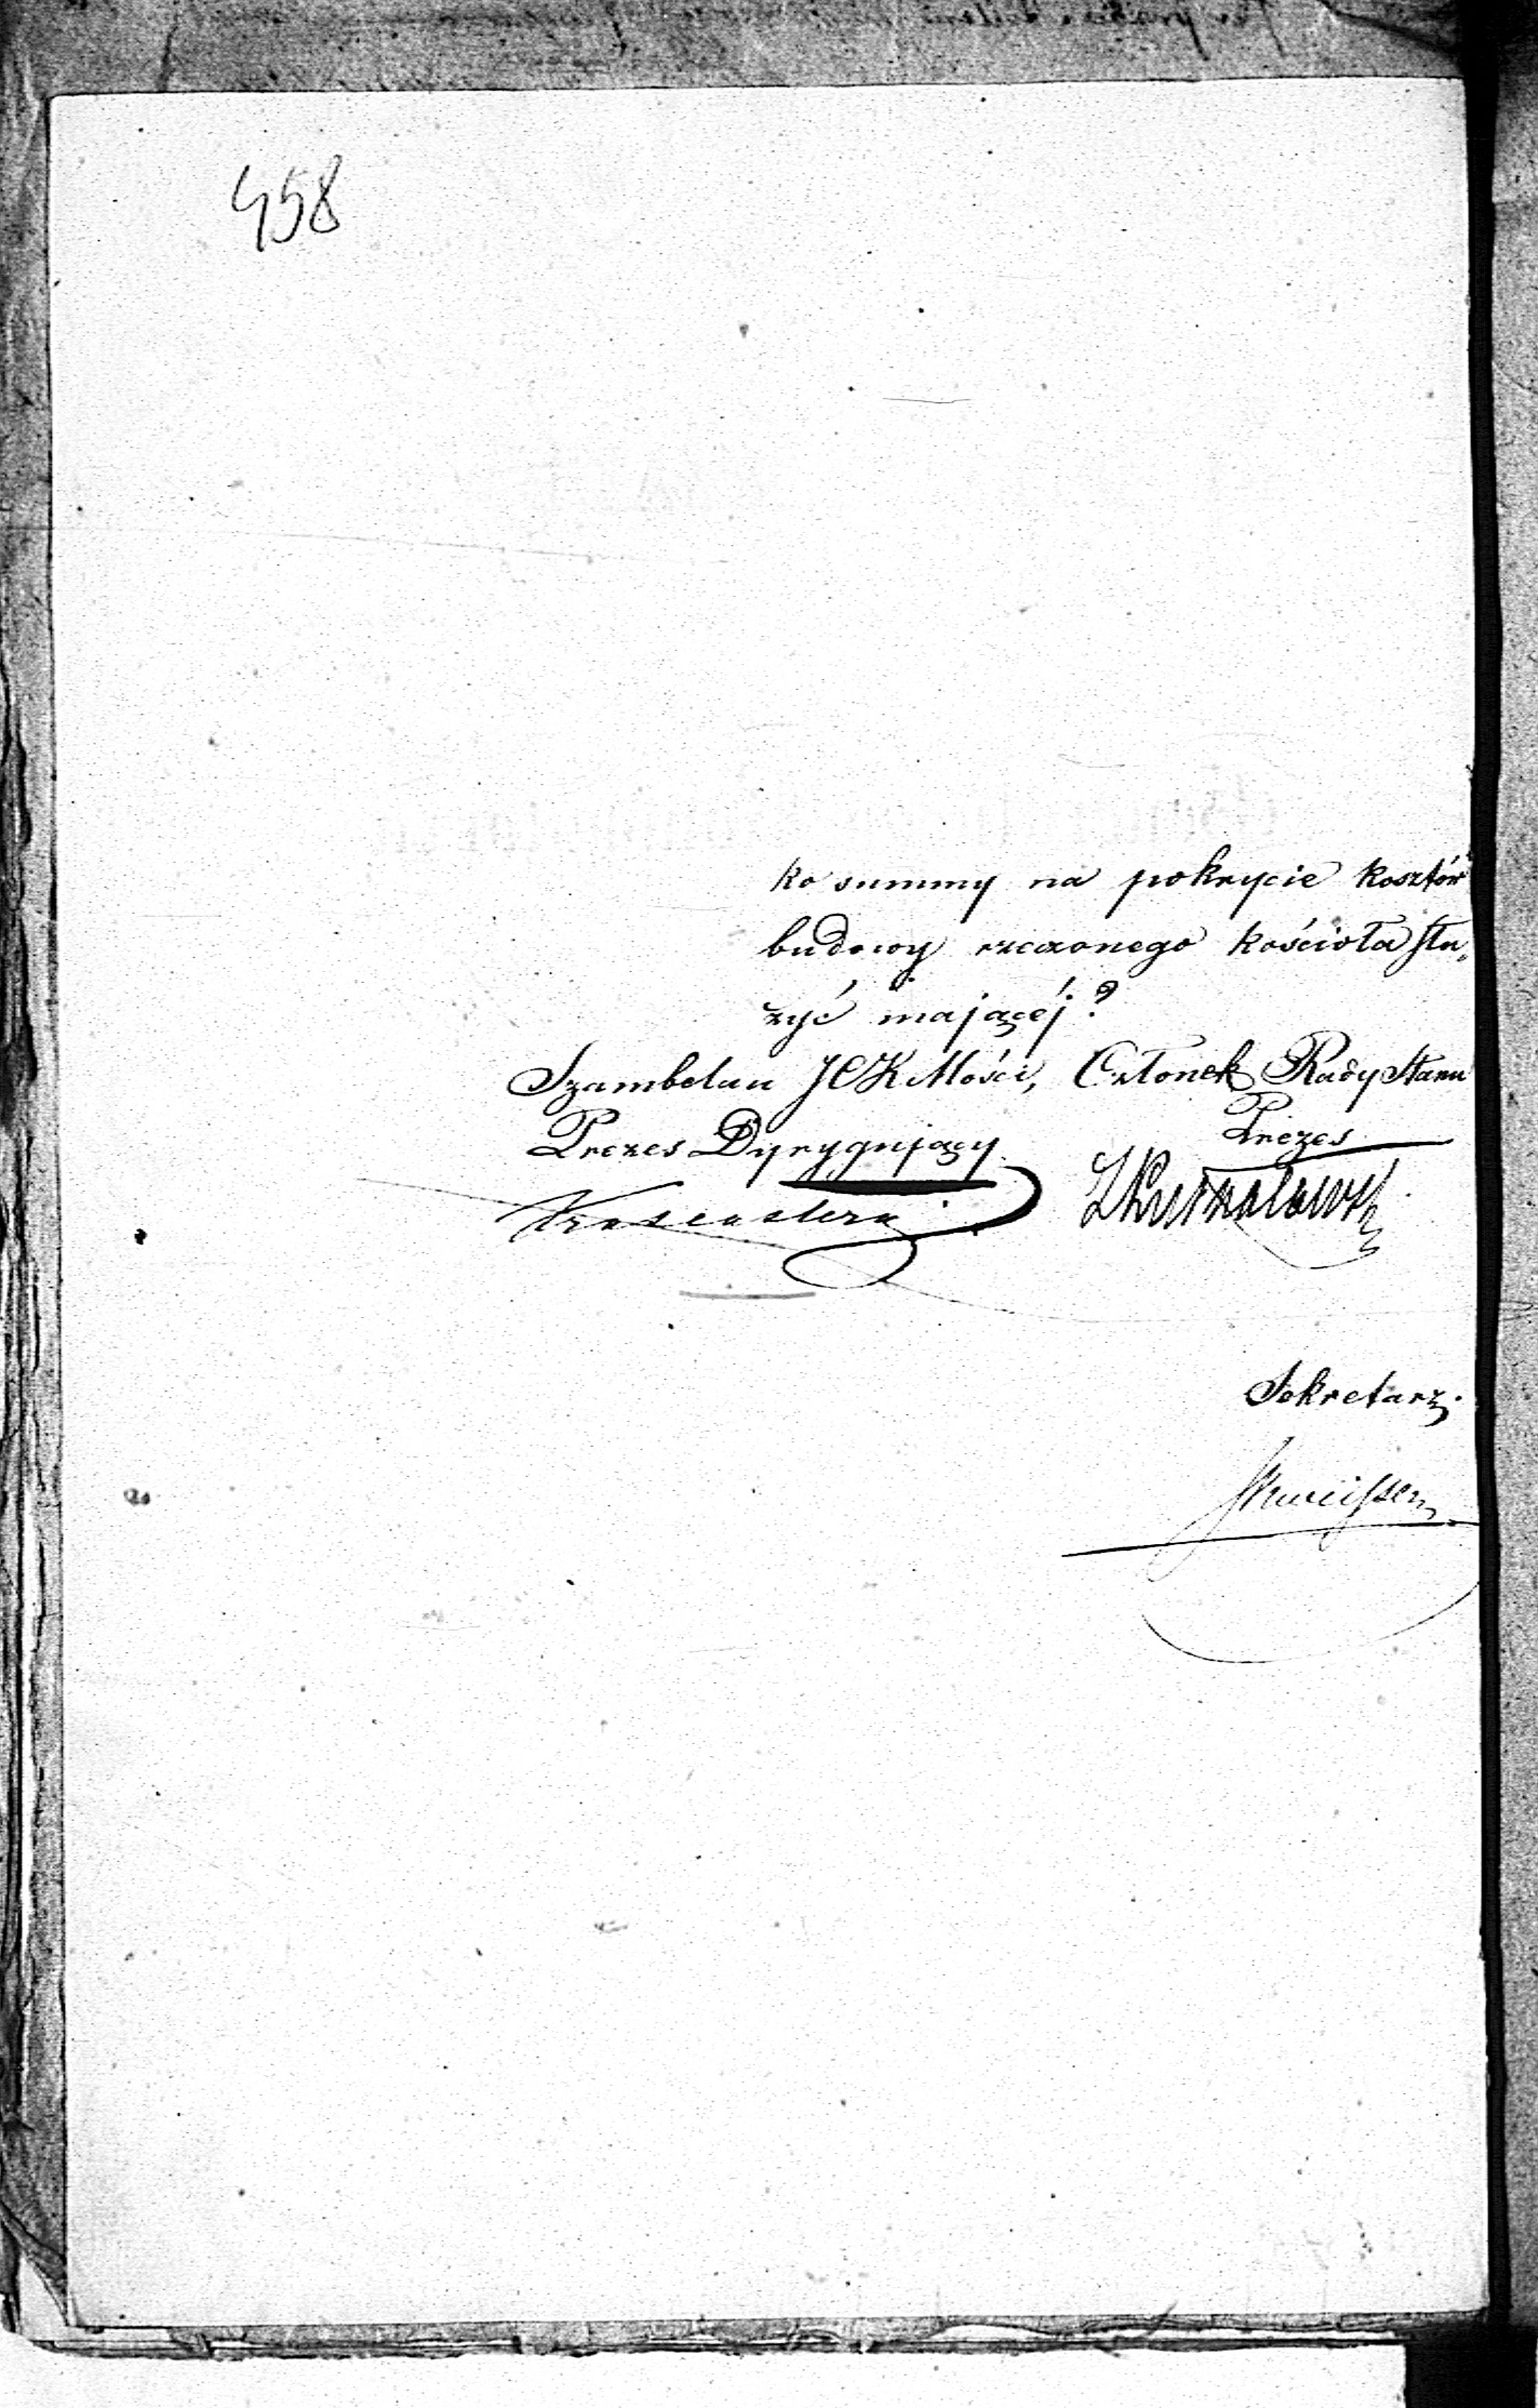 458
ko summy na pokrycie kosztów
budowy rzeczonego kościoła słu„
żyć mającéj?
Szambelan JCK Mości, Członek Rady Stanu
Prezes Dyrygujący Prezes
Sekretarz.